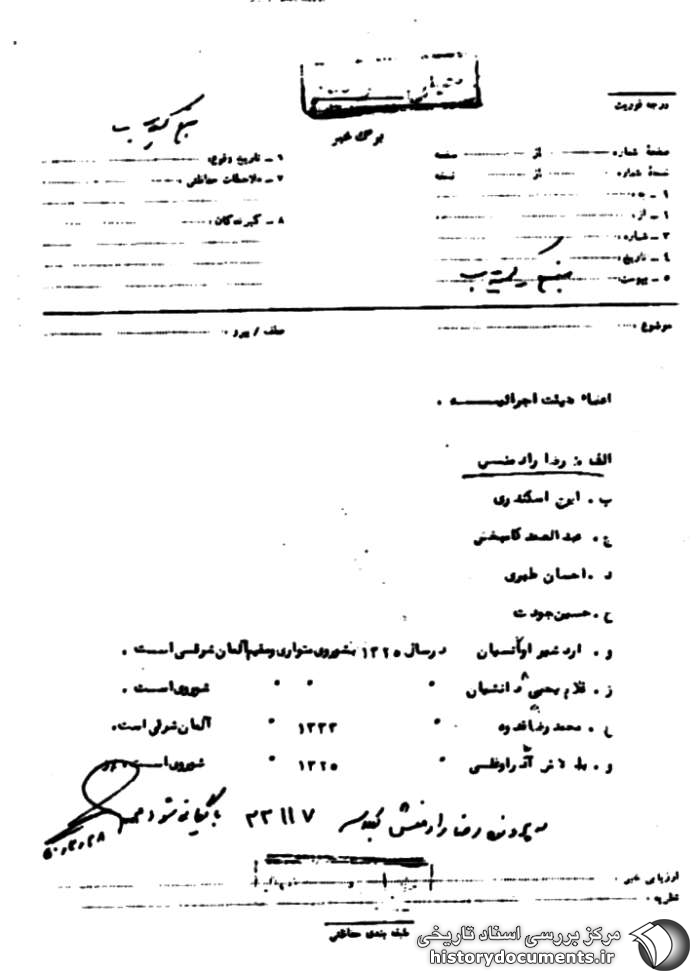 خیلی
برگ خبر
درجه فوریت
صفحهٔ شماره از صفحه
نسخهٔ شماره از نسخه
۱ ـ به :
۱ ـ از :
۳ ـ شماره :
۴ ـ تاریخ :
۵ ـ پیوست :
۶ ـ تاریخ وقوع :
۷ ـ ملاحظات حفاظتی :
۸ ـ گیرندگان :
موضوع :
عطف / پیرو :
اعضاء هیئت اجرائیـــه .
الف : رضا رادمنش
ب . ایرج اسکندری
ج . عبدالصمد کامبخش
د . احسان طبری
ح . حسین جودت
و . اردشیر اوانسیان درسال ۱۳۲۵ بشوروی متواری ومقیم آلمان شرقی است .
ز . غلام یحیی دانشیان " " " شوروی است .
ح . محمدرضا قدوه " ۱۳۳۳ " آلمان شرقی است.
و . " ۱۳۲۵ " شوروی است .
پرونده رضا رادمنش کلاسه ۲۳۱۱۷ بایگانی شود
۵۰،۲،۲۸
ارزیابی خبر :
نظریه :
طبقه بندی حفاظتی
مرکز بررسی اسناد تاریخی
historydocuments.ir